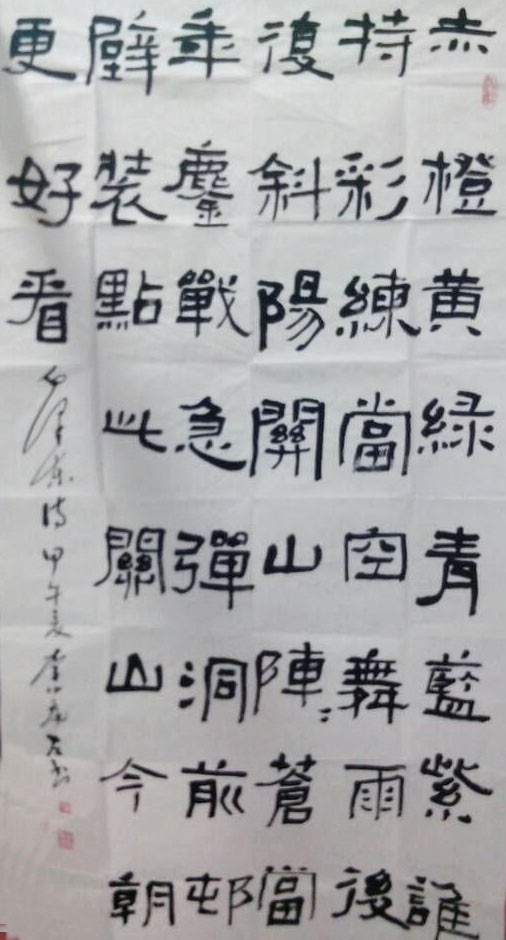 赤橙黄緑青藍紫誰
持彩練當空舞雨後
復斜陽關山陣〻蒼當
年鏖戰急彈洞前邨
壁裝點此關山今朝
更好看
毛澤東詩甲午夏